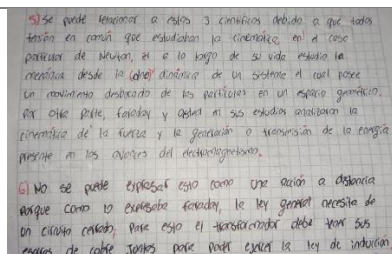 5) Se puede relacionar a estos 3 científicos debido a que todos
tenían en común que estudiaban la cinemática en el caso
particular de Newton, el a lo largo de su vida estudio la
mecánica desde la dinámica de un sistema el cual posee
un movimiento de las partículas en un espacio geométrico.
Por otra parte, faraday y en sus estudios analizaron la
cinemática de la fuerza y la generación o transmisión de la energía
presente en los avances del electromagnetismo.
6) No se puede expresar esto como una acción a distancia
porque como lo expresaba faraday, la ley general necesita de
un circuito cerrado, para esto el transformador debe tener sus
de cobre juntos para poder ejercer la ley de inducción